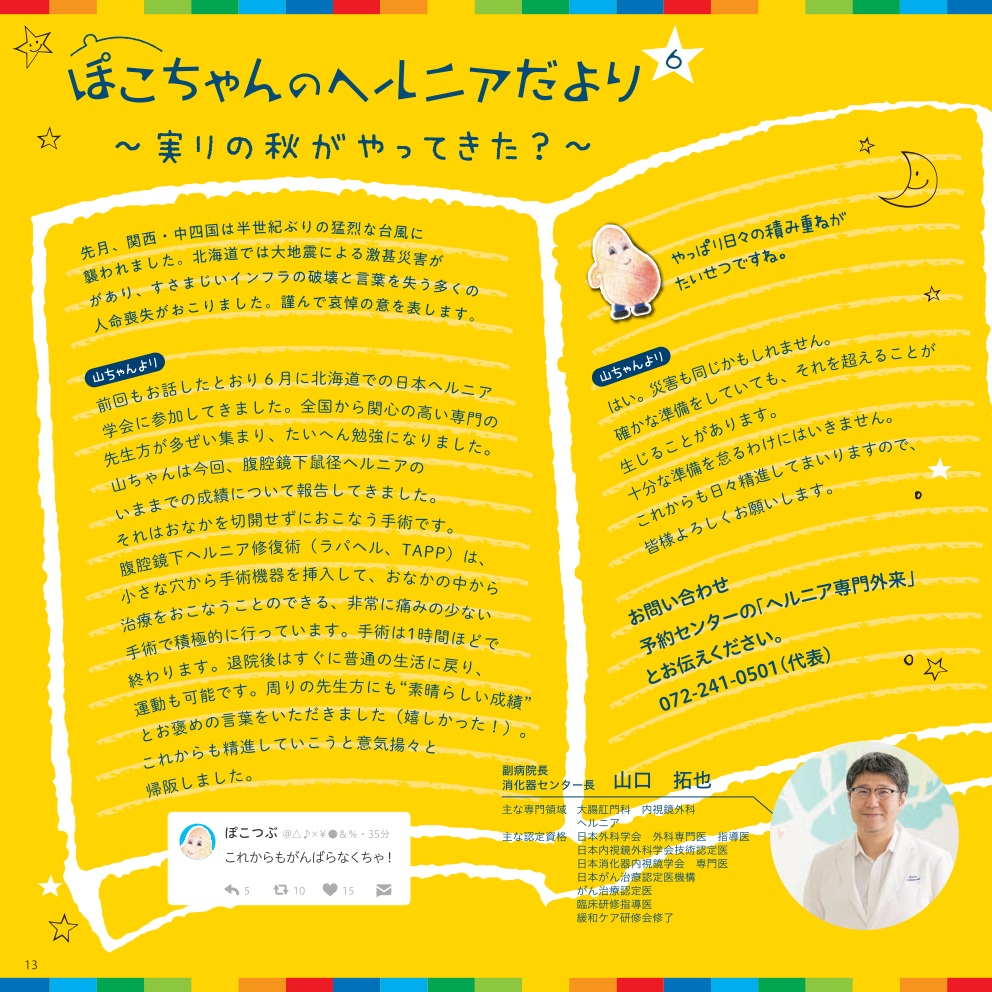 ぽこちゃんのヘルニアだより 6
～実りの秋がやってきた？～
先月、関西・中四国は半世紀ぶりの猛烈な台風に
襲われました。北海道では大地震による激甚災害が
があり、すさまじいインフラの破壊と言葉を失う多くの
人命喪失がおこりました。謹んで哀悼の意を表します。
山ちゃんより
前回もお話したとおり６月に北海道での日本ヘルニア
学会に参加してきました。全国から関心の高い専門の
先生方が多ぜい集まり、たいへん勉強になりました。
山ちゃんは今回、腹腔鏡下鼠径ヘルニアの
いままでの成績について報告してきました。
それはおなかを切開せずにおこなう手術です。
腹腔鏡下ヘルニア修復術（ラパヘル、TAPP）は、
小さな穴から手術機器を挿入して、おなかの中から
治療をおこなうことのできる、非常に痛みの少ない
手術で積極的に行っています。手術は1時間ほどで
終わります。退院後はすぐに普通の生活に戻り、
運動も可能です。周りの先生方にも“素晴らしい成績”
とお褒めの言葉をいただきました（嬉しかった！）。
これからも精進していこうと意気揚々と
帰阪しました。
ぽこつぶ @△♪×￥●＆％・35分
これからもがんばらなくちゃ！
5 10 15
やっぱり日々の積み重ねが
たいせつですね。
山ちゃんより
はい。災害も同じかもしれません。
確かな準備をしていても、それを超えることが
生じることがあります。
十分な準備を怠るわけにはいきません。
これからも日々精進してまいりますので、
皆様よろしくお願いします。
お問い合わせ
予約センターの「ヘルニア専門外来」
とお伝えください。
072-241-0501（代表）
副病院長
消化器センター長 山口 拓也
主な専門領域 大腸肛門科 内視鏡外科
ヘルニア
主な認定資格 日本外科学会 外科専門医 指導医
日本内視鏡外科学会技術認定医
日本消化器内視鏡学会 専門医
日本がん治療認定医機構
がん治療認定医
臨床研修指導医
緩和ケア研修会修了
13